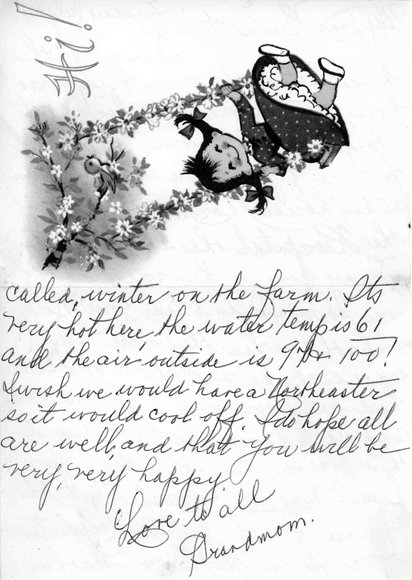 Hi!
called, winter on the farm. Its
very hot here, the water temp is 61
and the air outside is 97 to 100!
I wish we would have a Northeaster
so it would cool off. I do hope all
are well, and that you will be
very, very happy
Love to all
Grandmom.